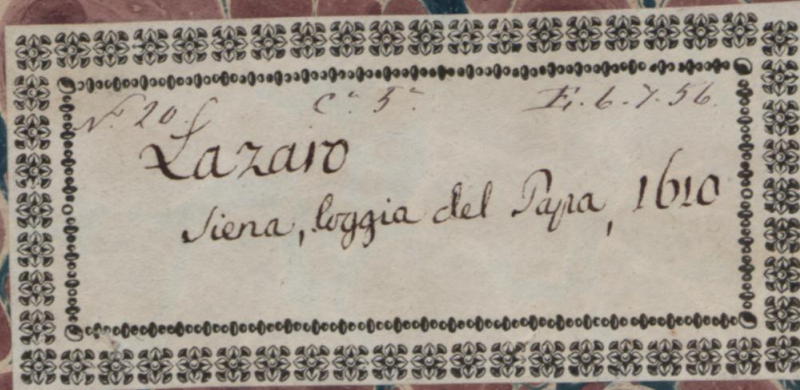 N. 20. C.ª 5.ª E. 6. 7. 56.
Lazaro
Siena, loggia del Papa, 1610